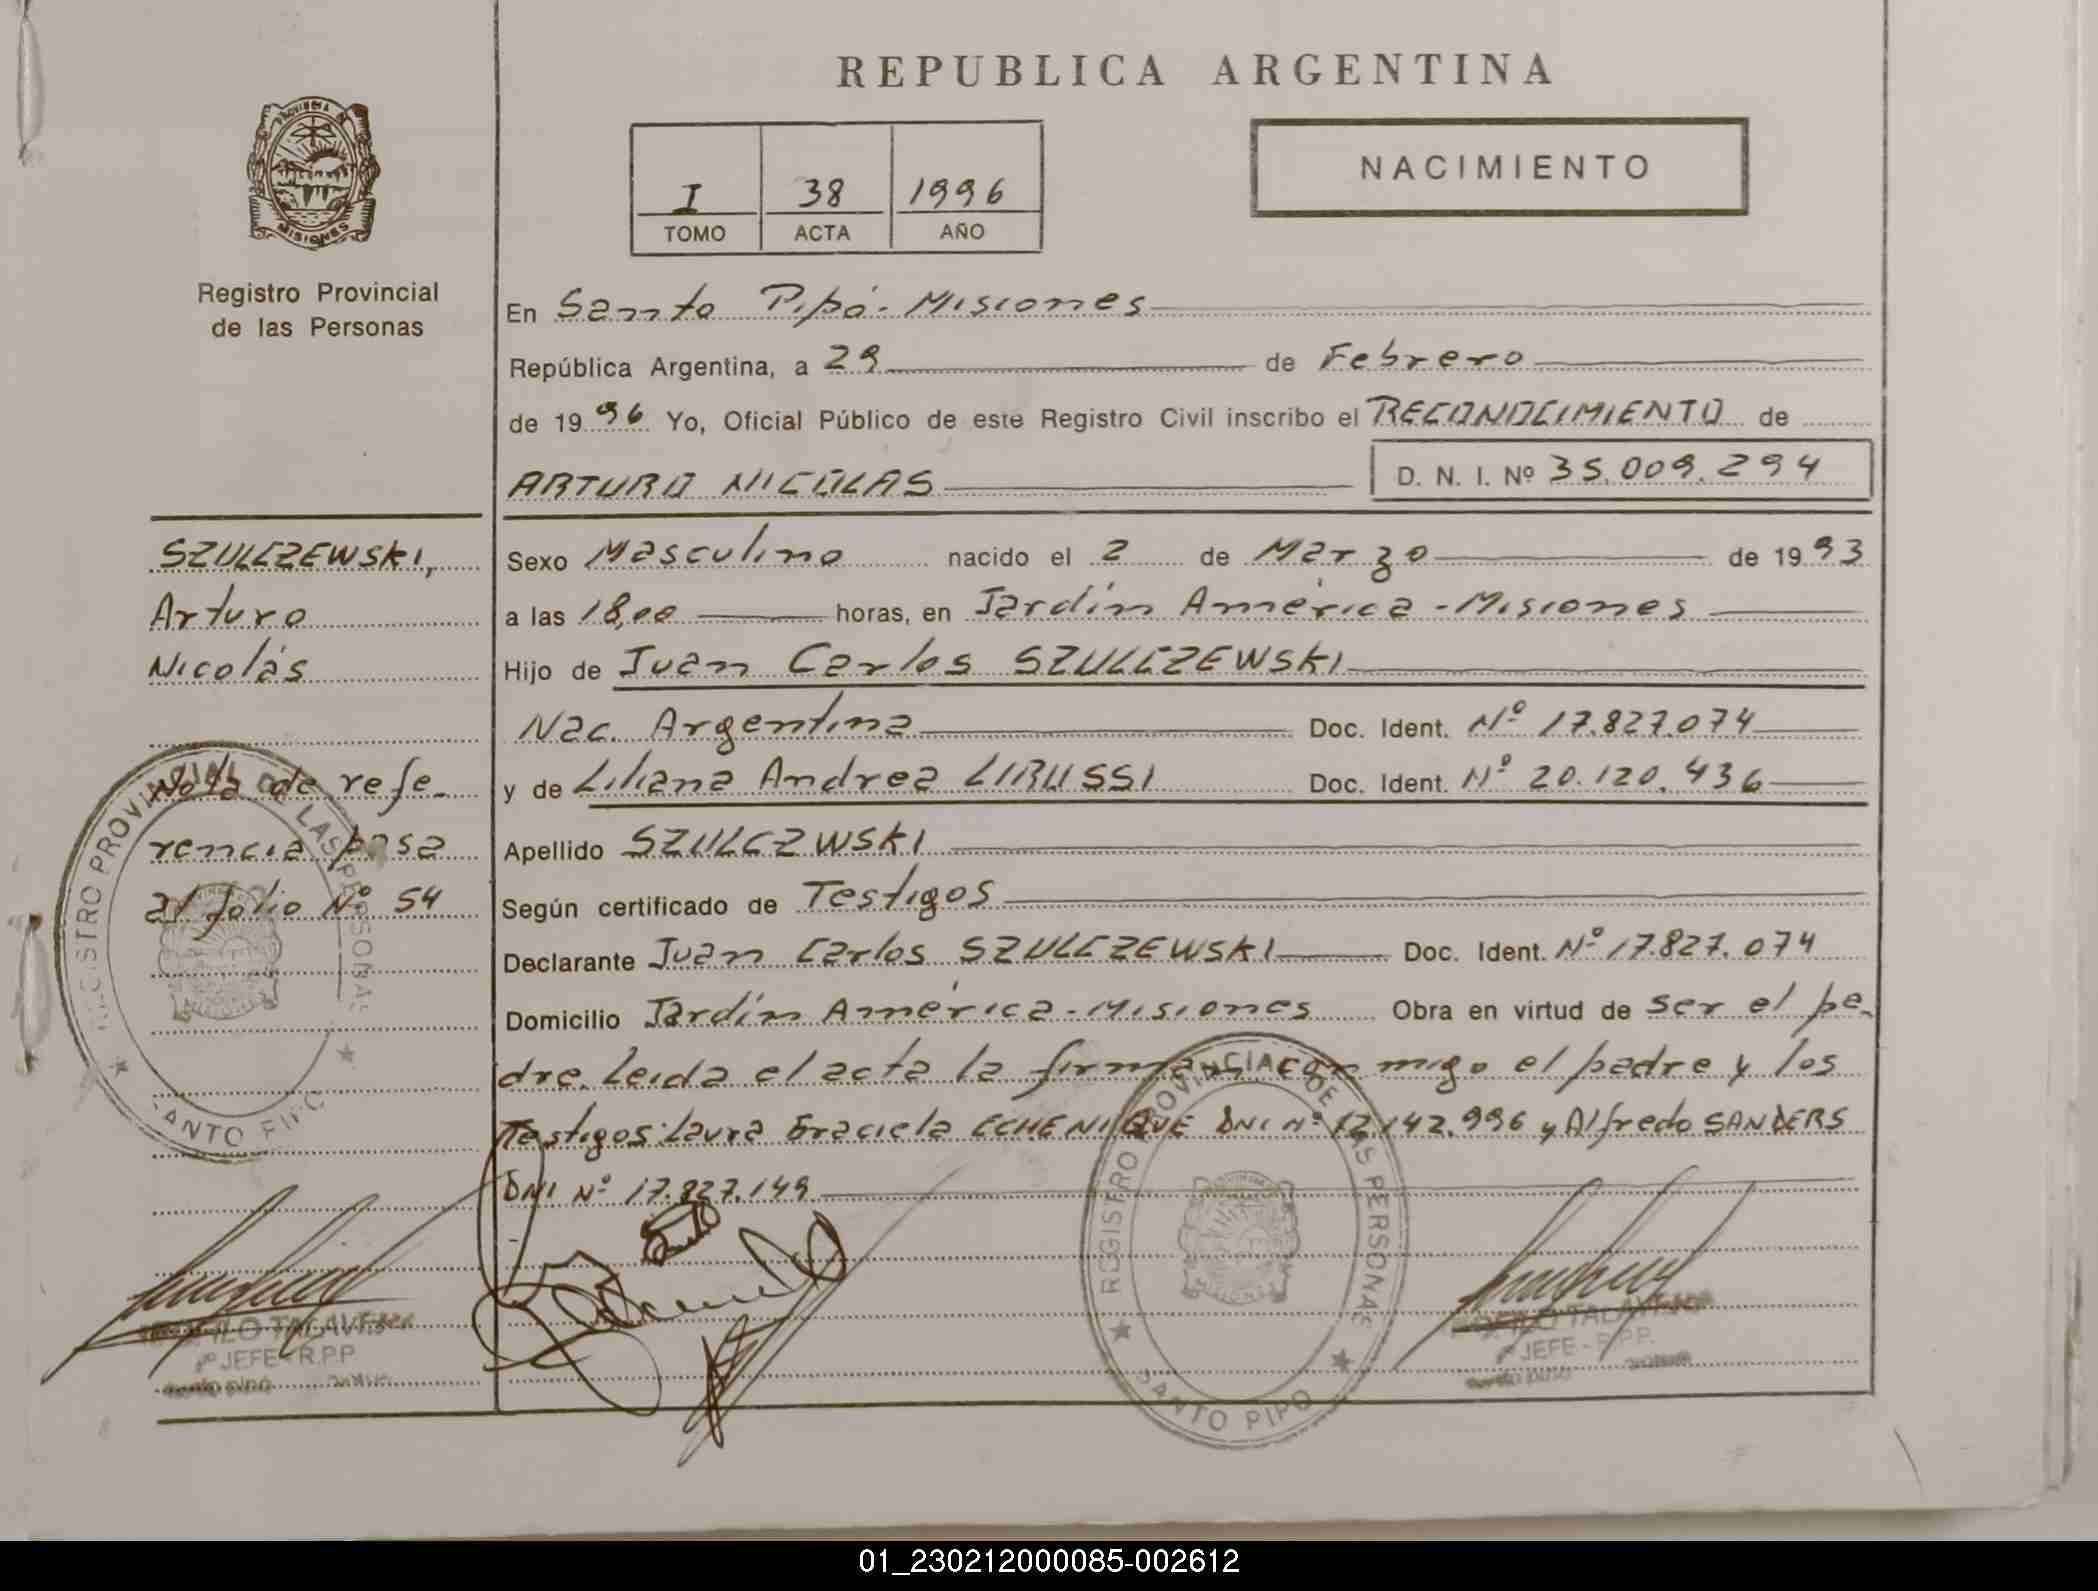 REPUBLICA ARGENTINA
PROVINCIA
MISIONES
Registro Provincial
de las Personas
I 38 1996
TOMO ACTA AÑO
NACIMIENTO
En Santo Pipó - Misiones
República Argentina, a 29 de Febrero
de 1996 Yo, Oficial Público de este Registro Civil inscribo el RECONOCIMIENTO de
ARTURO NICOLAS D. N. I. Nº 35.009.294
SZULCZEWSKI,
Arturo
Nicolás
Nota de refe-
rencia pasa
al folio Nº 54
Sexo Masculino nacido el 2 de Marzo de 1993
a las 18,00 horas, en Jardín América - Misiones
Hijo de Juan Carlos SZULCZEWSKI
Nac. Argentina Doc. Ident. Nº 17.827.074
y de Liliana Andrea LIRUSSI Doc. Ident. Nº 20.120.436
Apellido SZULCZWSKI
Según certificado de Testigos
Declarante Juan Carlos SZULCZEWSKI Doc. Ident. Nº 17.827.074
Domicilio Jardín América - Misiones Obra en virtud de ser el pa-
dre. Leida el acta la firman con migo el padre y los
Testigos: Laura Graciela ECHENIQUE DNI Nº 12.142.996 y Alfredo SANDERS
DNI Nº 17.827.149
REGISTRO PROVINCIAL DE LAS PERSONAS
SANTO PIPO
REGISTRO PROVINCIAL DE LAS PERSONAS
SANTO PIPO
TALAVERA
JEFE - R.P.P.
TALAVERA
JEFE - R.P.P.
01_230212000085-002612